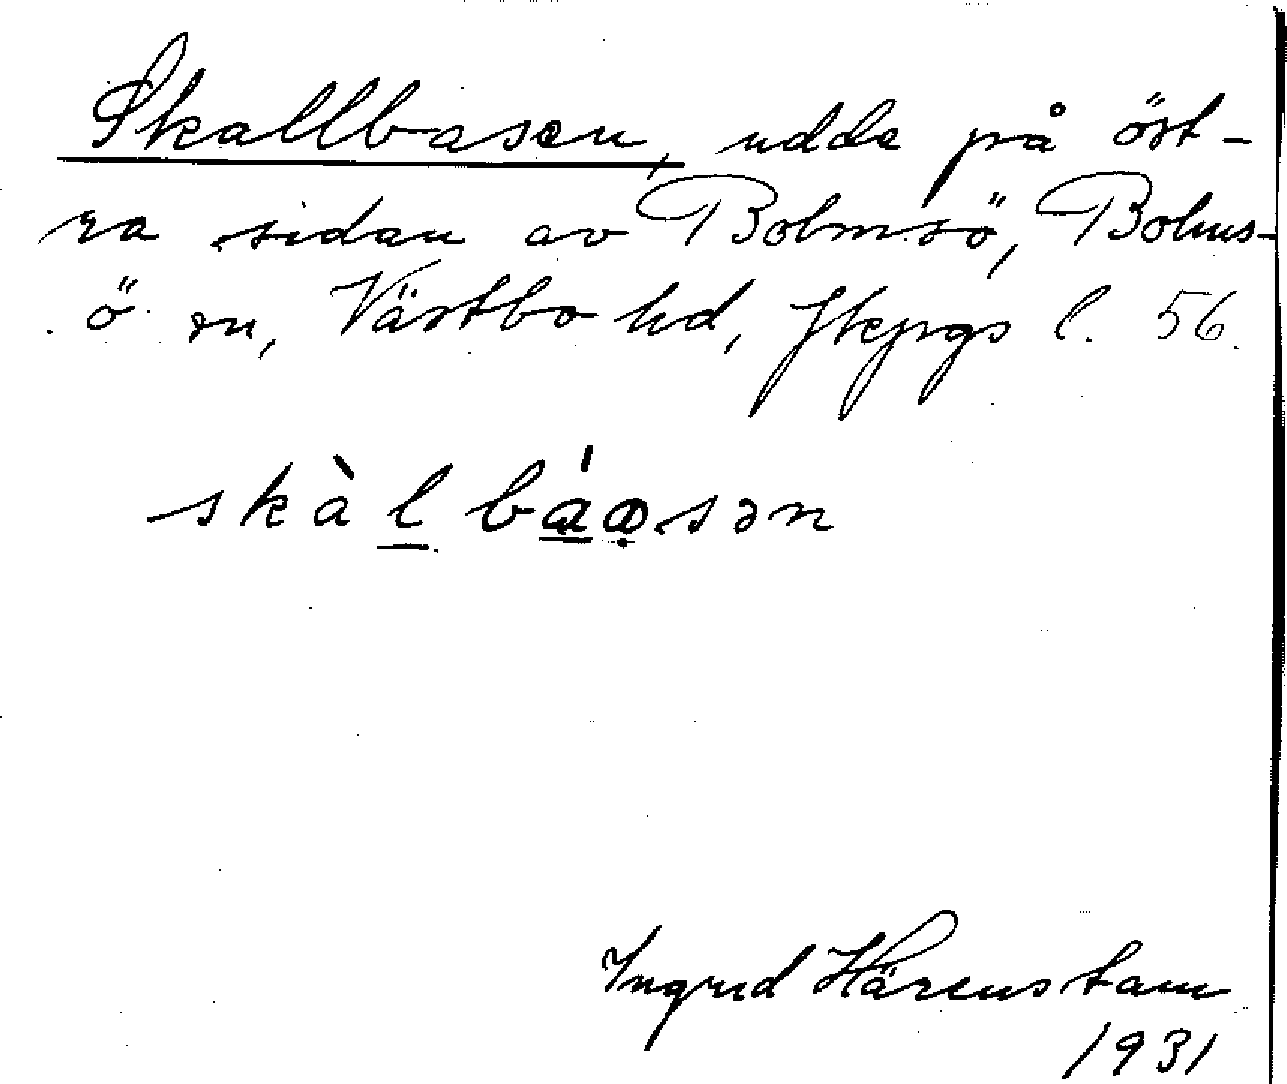 Skallbasen, udde på öst-
ra sidan av Bolmsö, Bolms-
ö sn, Västbo hd, Jkpgs l. 56.
skàl báɑsən
Ingrid Härenstam
1931